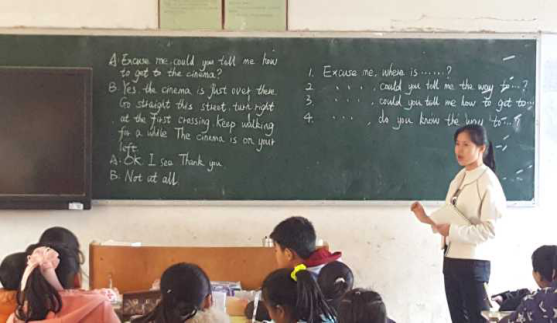 A: Excuse me, could you tell me how
to get to the cinema?
B: Yes. the cinema is just over there.
Go straight this street. turn right
at the first crossing. Keep walking
for a while The cinema is on your
left.
A: Ok. I see. Thank you
B. Not at all.
1. Excuse me, where is ......?
2. . . . . , could you tell me the way to ...?
3. . . . . , could you tell me how to get to ...
4. . . . . , do you know the way to ...